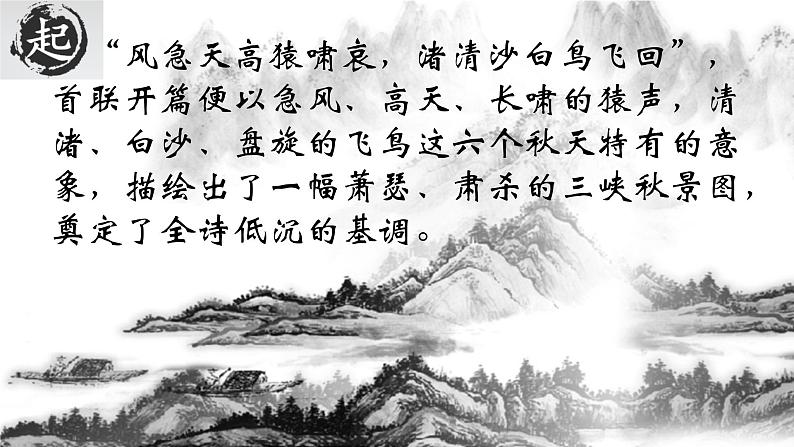 起
“风急天高猿啸哀，渚清沙白鸟飞回”，
首联开篇便以急风、高天、长啸的猿声，清
渚、白沙、盘旋的飞鸟这六个秋天特有的意
象，描绘出了一幅萧瑟、肃杀的三峡秋景图，
奠定了全诗低沉的基调。